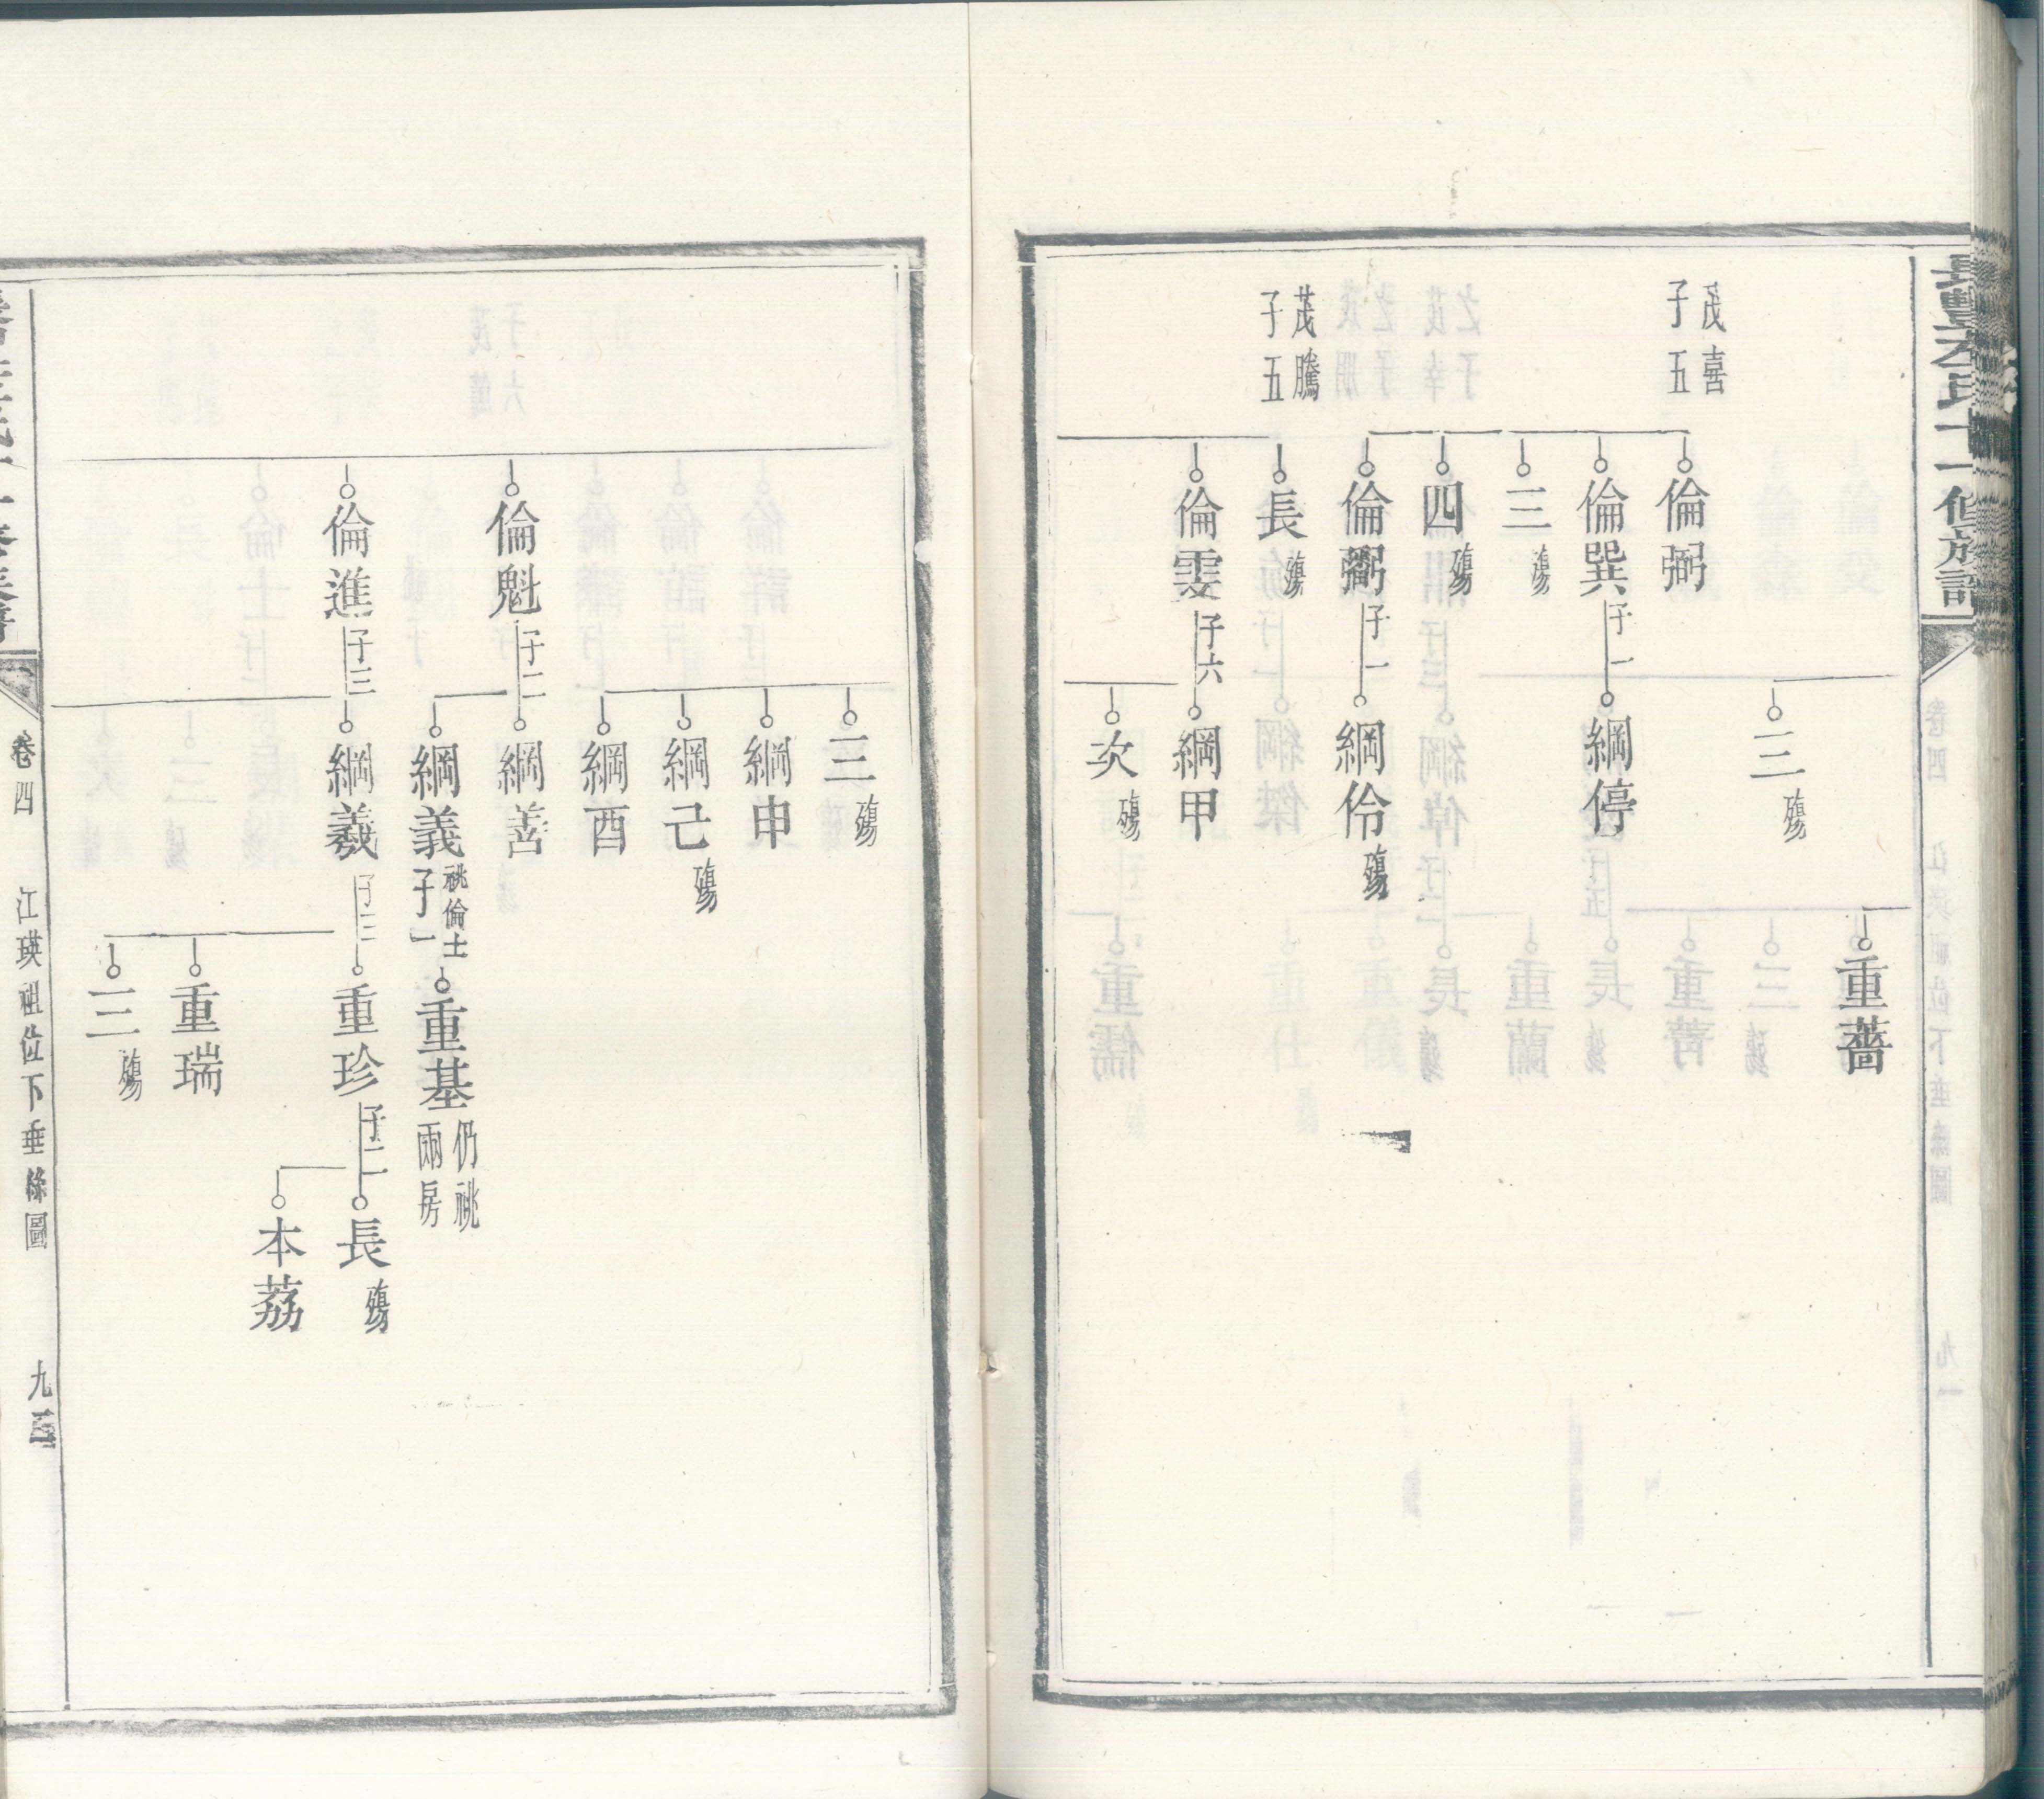 茂喜
子五
茂騰
子五
倫弼
倫巽 子一
三 殤
四 殤
倫鬻 子一
長 殤
倫雯 子六
三 殤
綱停
綱伶 殤
綱甲
次 殤
重薔
倫魁 子二
倫進 子三
三 殤
綱申
綱己 殤
綱酉
綱善
綱義 祧倫士 子一
綱羲 子三
重基 仍祧兩房
重珍 子二
重瑞
三 殤
長 殤
本荔
卷四
江瑛祖位下垂絲圖